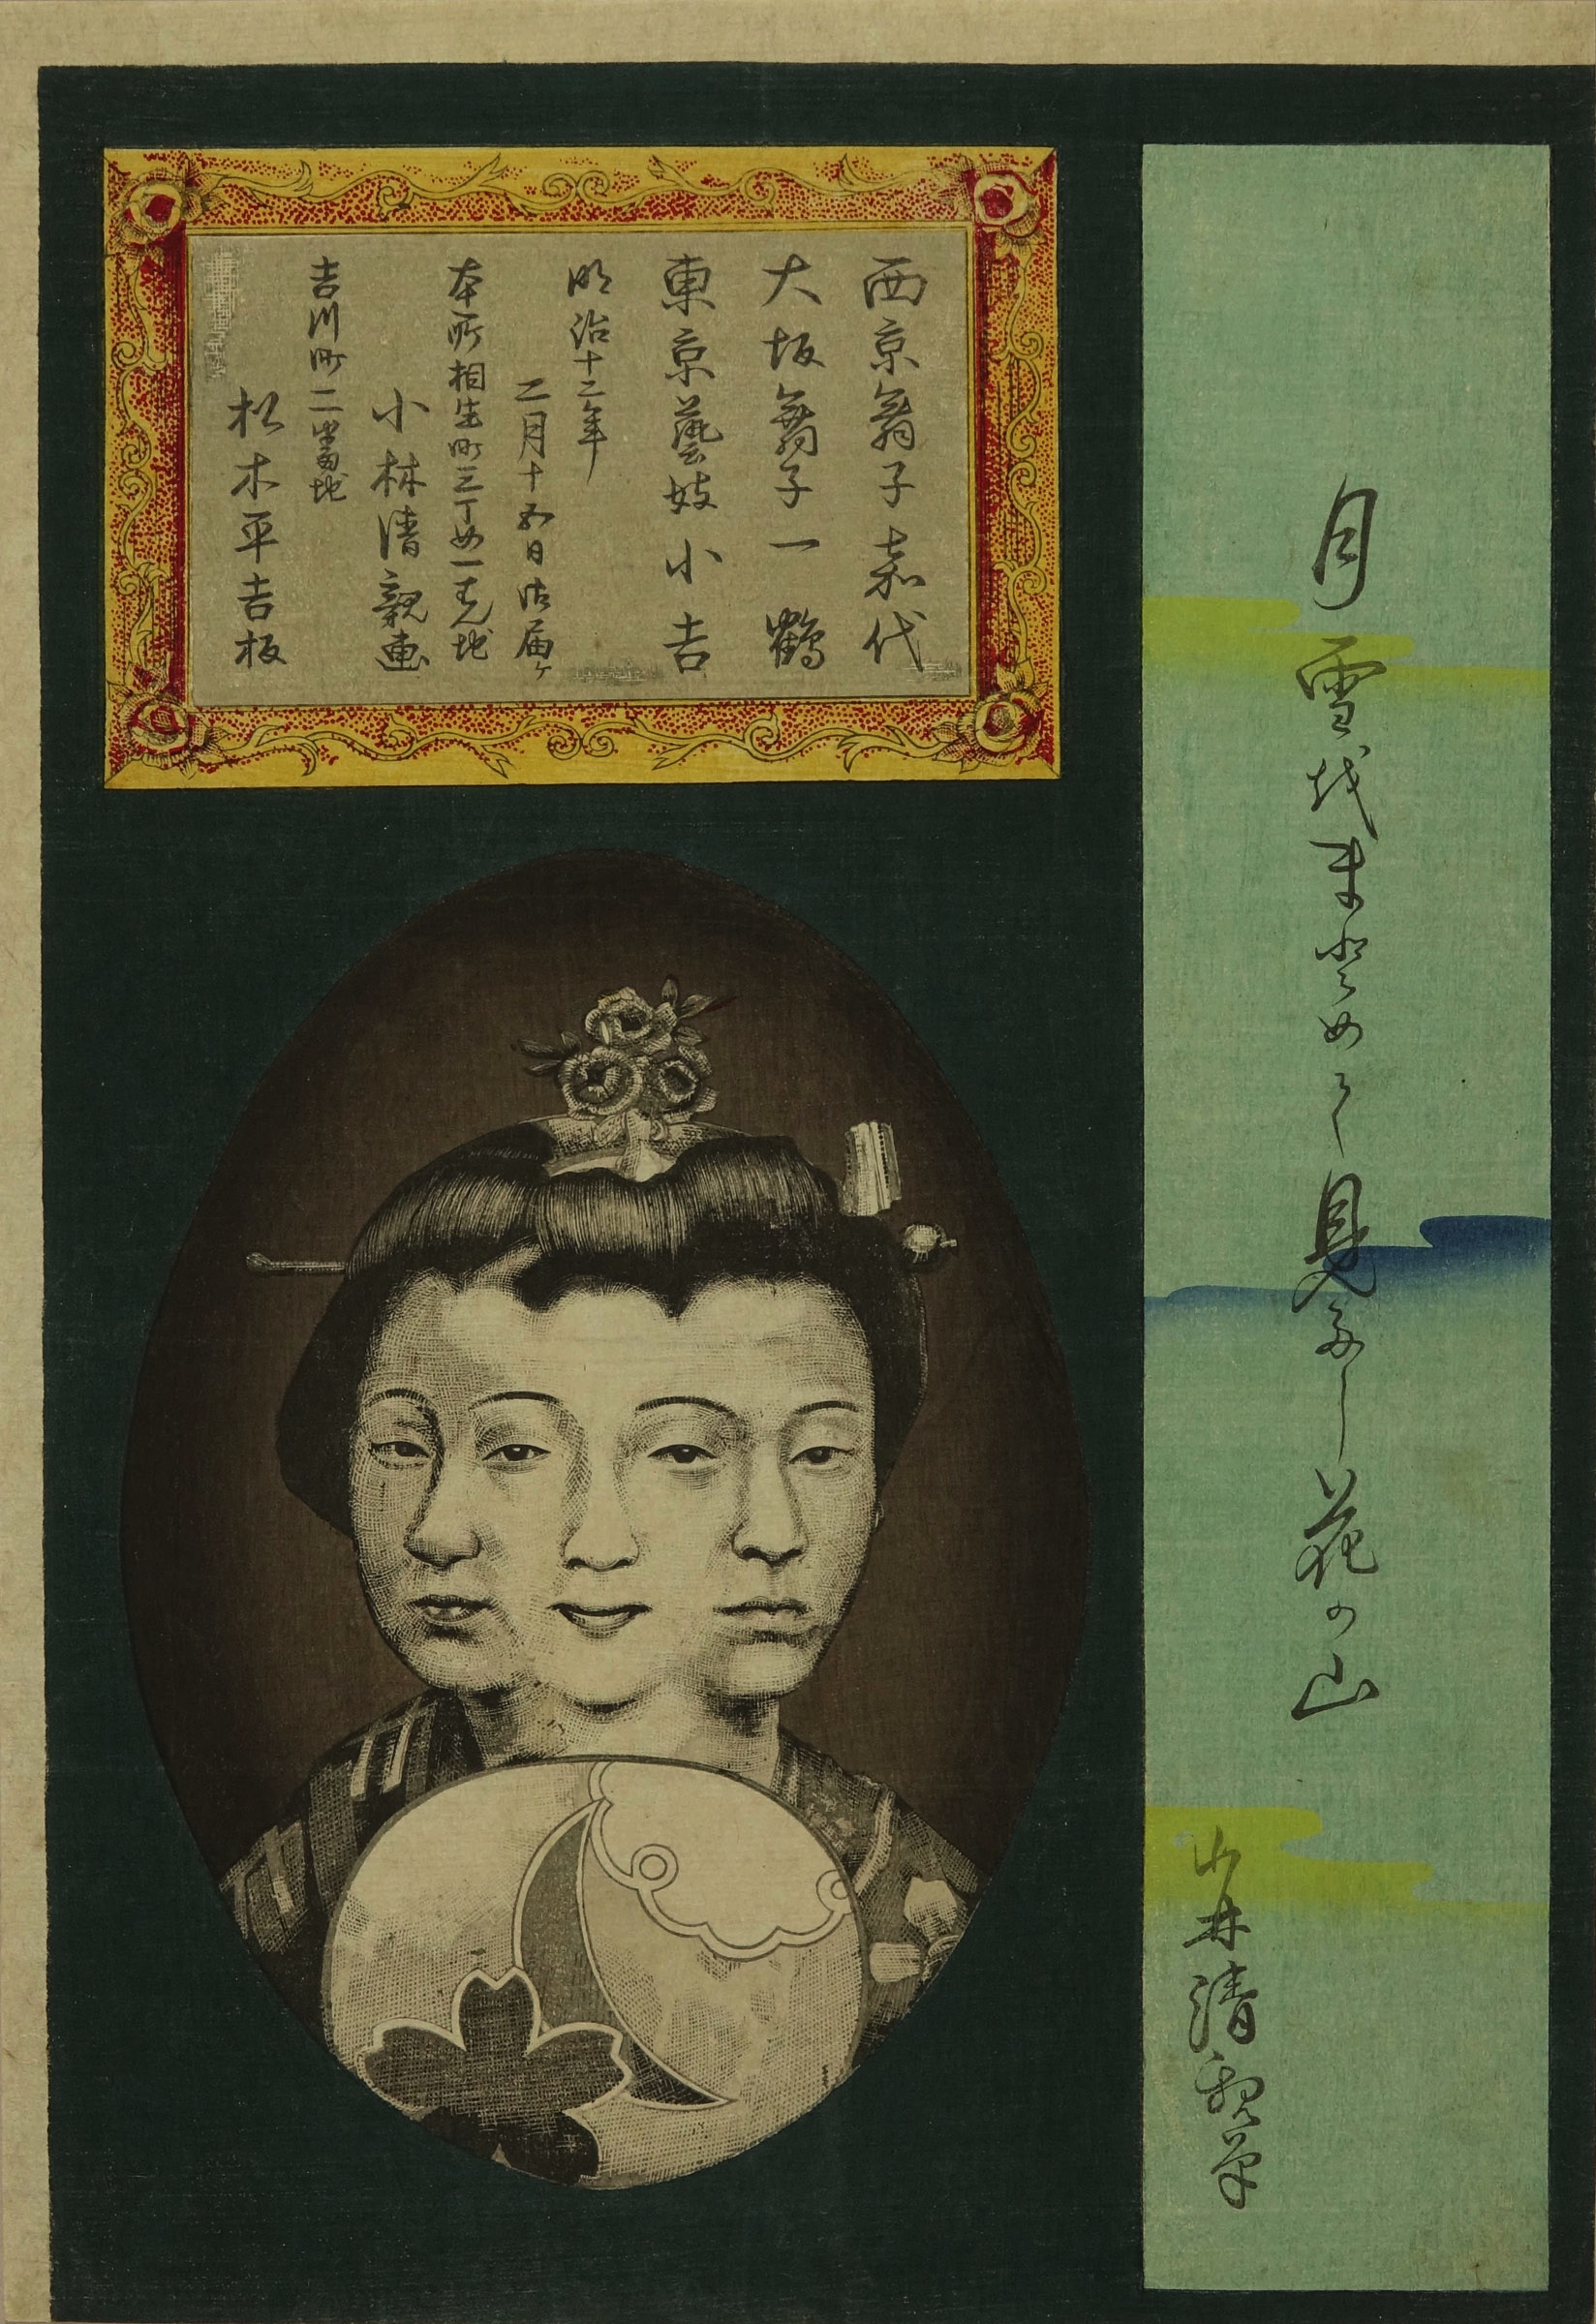 月雪越まとめて見多し花の山
小林清親筆
西京舞子嘉代
大坂舞子一鶴
東京藝妓小吉
明治十二年
二月十五日御届ケ
本所相生町三丁め一番地
小林清親画
吉川町二番地
松木平吉板